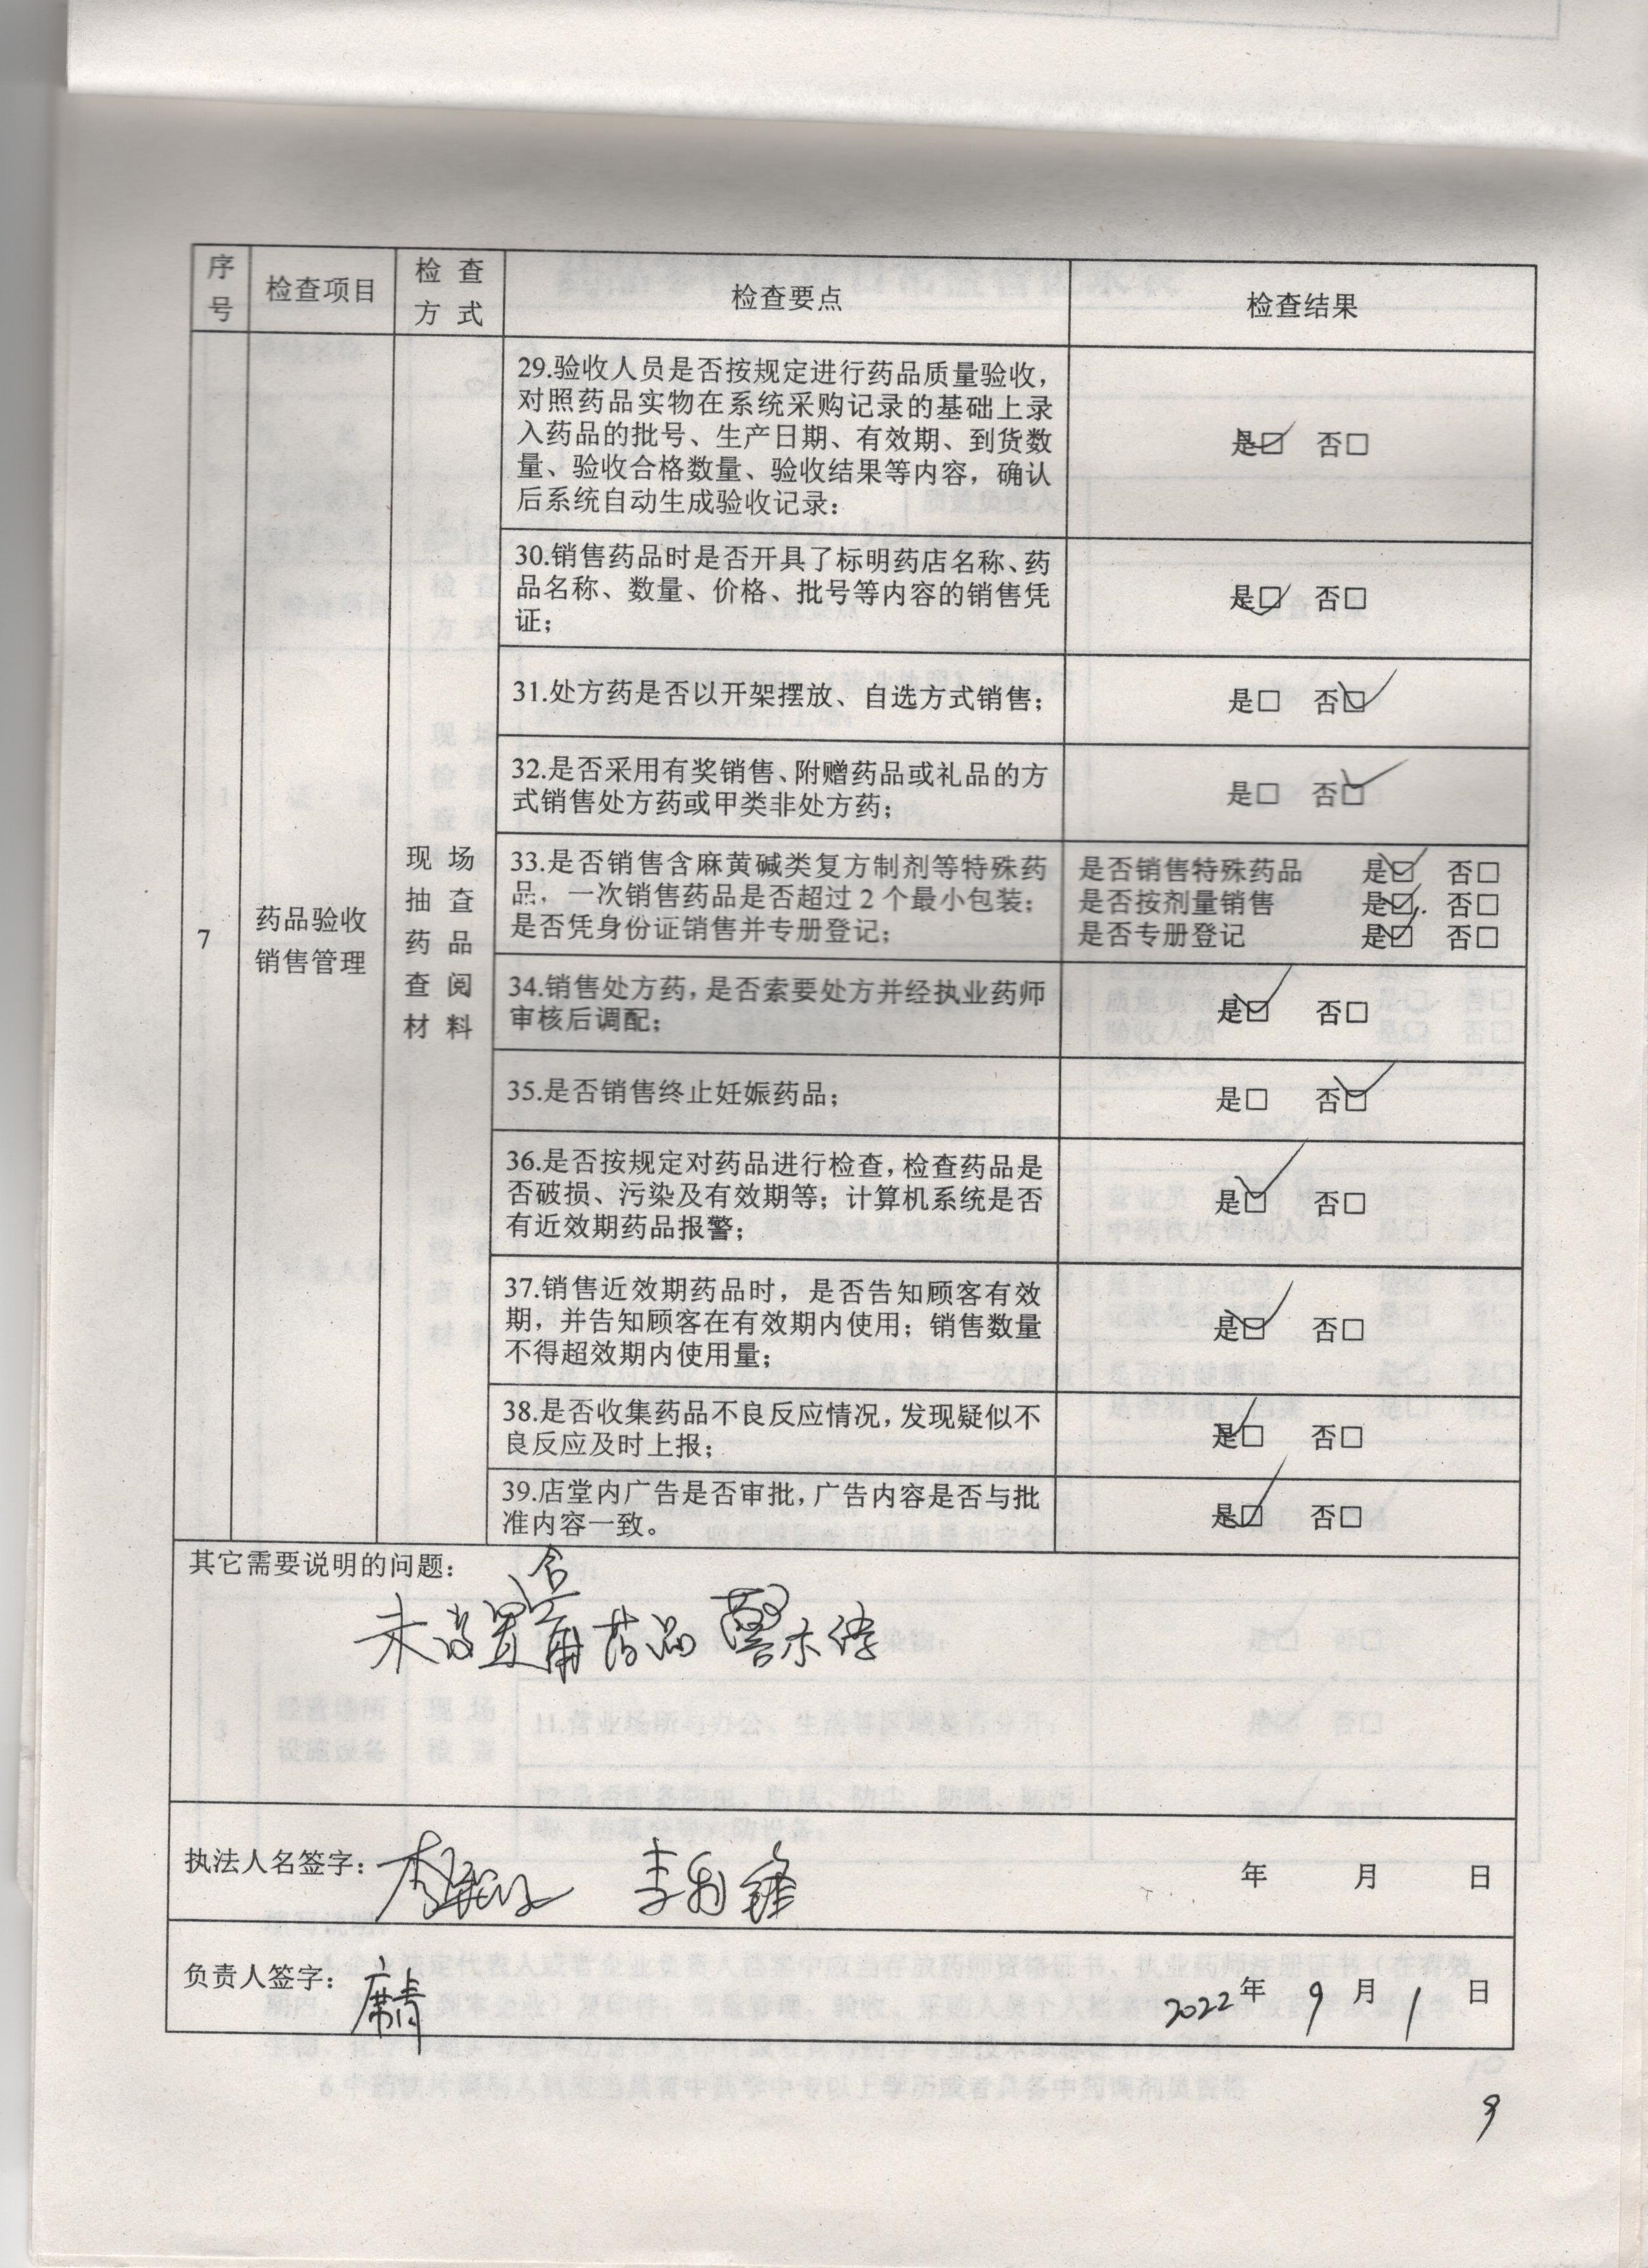 序号 检查项目 检查方式 检查要点 检查结果
7 药品验收销售管理 现场抽查药品查阅材料
29.验收人员是否按规定进行药品质量验收，
对照药品实物在系统采购记录的基础上录
入药品的批号、生产日期、有效期、到货数
量、验收合格数量、验收结果等内容，确认
后系统自动生成验收记录：
是☑ 否□
30.销售药品时是否开具了标明药店名称、药
品名称、数量、价格、批号等内容的销售凭
证；
是☑ 否□
31.处方药是否以开架摆放、自选方式销售；
是□ 否☑
32.是否采用有奖销售、附赠药品或礼品的方
式销售处方药或甲类非处方药；
是□ 否☑
33.是否销售含麻黄碱类复方制剂等特殊药
品，一次销售药品是否超过 2 个最小包装；
是否凭身份证销售并专册登记；
是否销售特殊药品 是☑ 否□
是否按剂量销售 是☑ 否□
是否专册登记 是☑ 否□
34.销售处方药，是否索要处方并经执业药师
审核后调配；
是☑ 否□
35.是否销售终止妊娠药品；
是□ 否☑
36.是否按规定对药品进行检查，检查药品是
否破损、污染及有效期等；计算机系统是否
有近效期药品报警；
是☑ 否□
37.销售近效期药品时，是否告知顾客有效
期，并告知顾客在有效期内使用；销售数量
不得超效期内使用量；
是☑ 否□
38.是否收集药品不良反应情况，发现疑似不
良反应及时上报；
是☑ 否□
39.店堂内广告是否审批，广告内容是否与批
准内容一致。
是☑ 否□
其它需要说明的问题：
未设置含 药品警示
执法人名签字： 李 年 月 日
负责人签字： 2022年 9 月 1 日
9